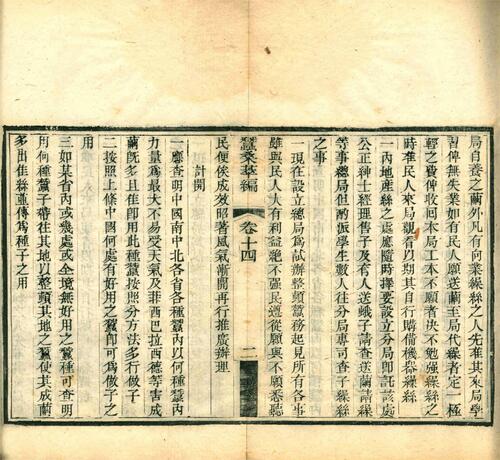 局自養之繭外凡有向業繅絲之人先准其來局學
習俾無失業如有民人願送繭至局代繅者定一極
輕之費俾收回本局工本不願者決不勉強繅絲之
時准民人來局觀看以期其自行購備機器繅絲
一內地產絲之處應隨時擇要設立分局即託該處
公正紳士經理售子及有人送蛾子請查送繭請繅
等事總局但酌派學生數人往分局專司查子繅絲
之事
一現在設立總局爲試辦整頓蠶務起見所有各事
雖與民人大有利益絕不強民遵從願與不願悉聽
蠶桑萃編
卷十四
二
民便俟成效昭著風氣漸開再行推廣辦理
計開
一應查明中國南中北各省各種蠶內以何種蠶內
力量爲最大不易受天氣及菲西巴拉西德等害成
繭旣多且佳卽用此種蠶按照分方法多行做子
二按照上條中國何處有好用之蠶卽可爲做子之
用
三如某省內或幾處或全境無好用之蠶種可查明
用何種蠶子帶往其地以整頓其地之蠶使其成繭
多出佳絲並傳爲種子之用